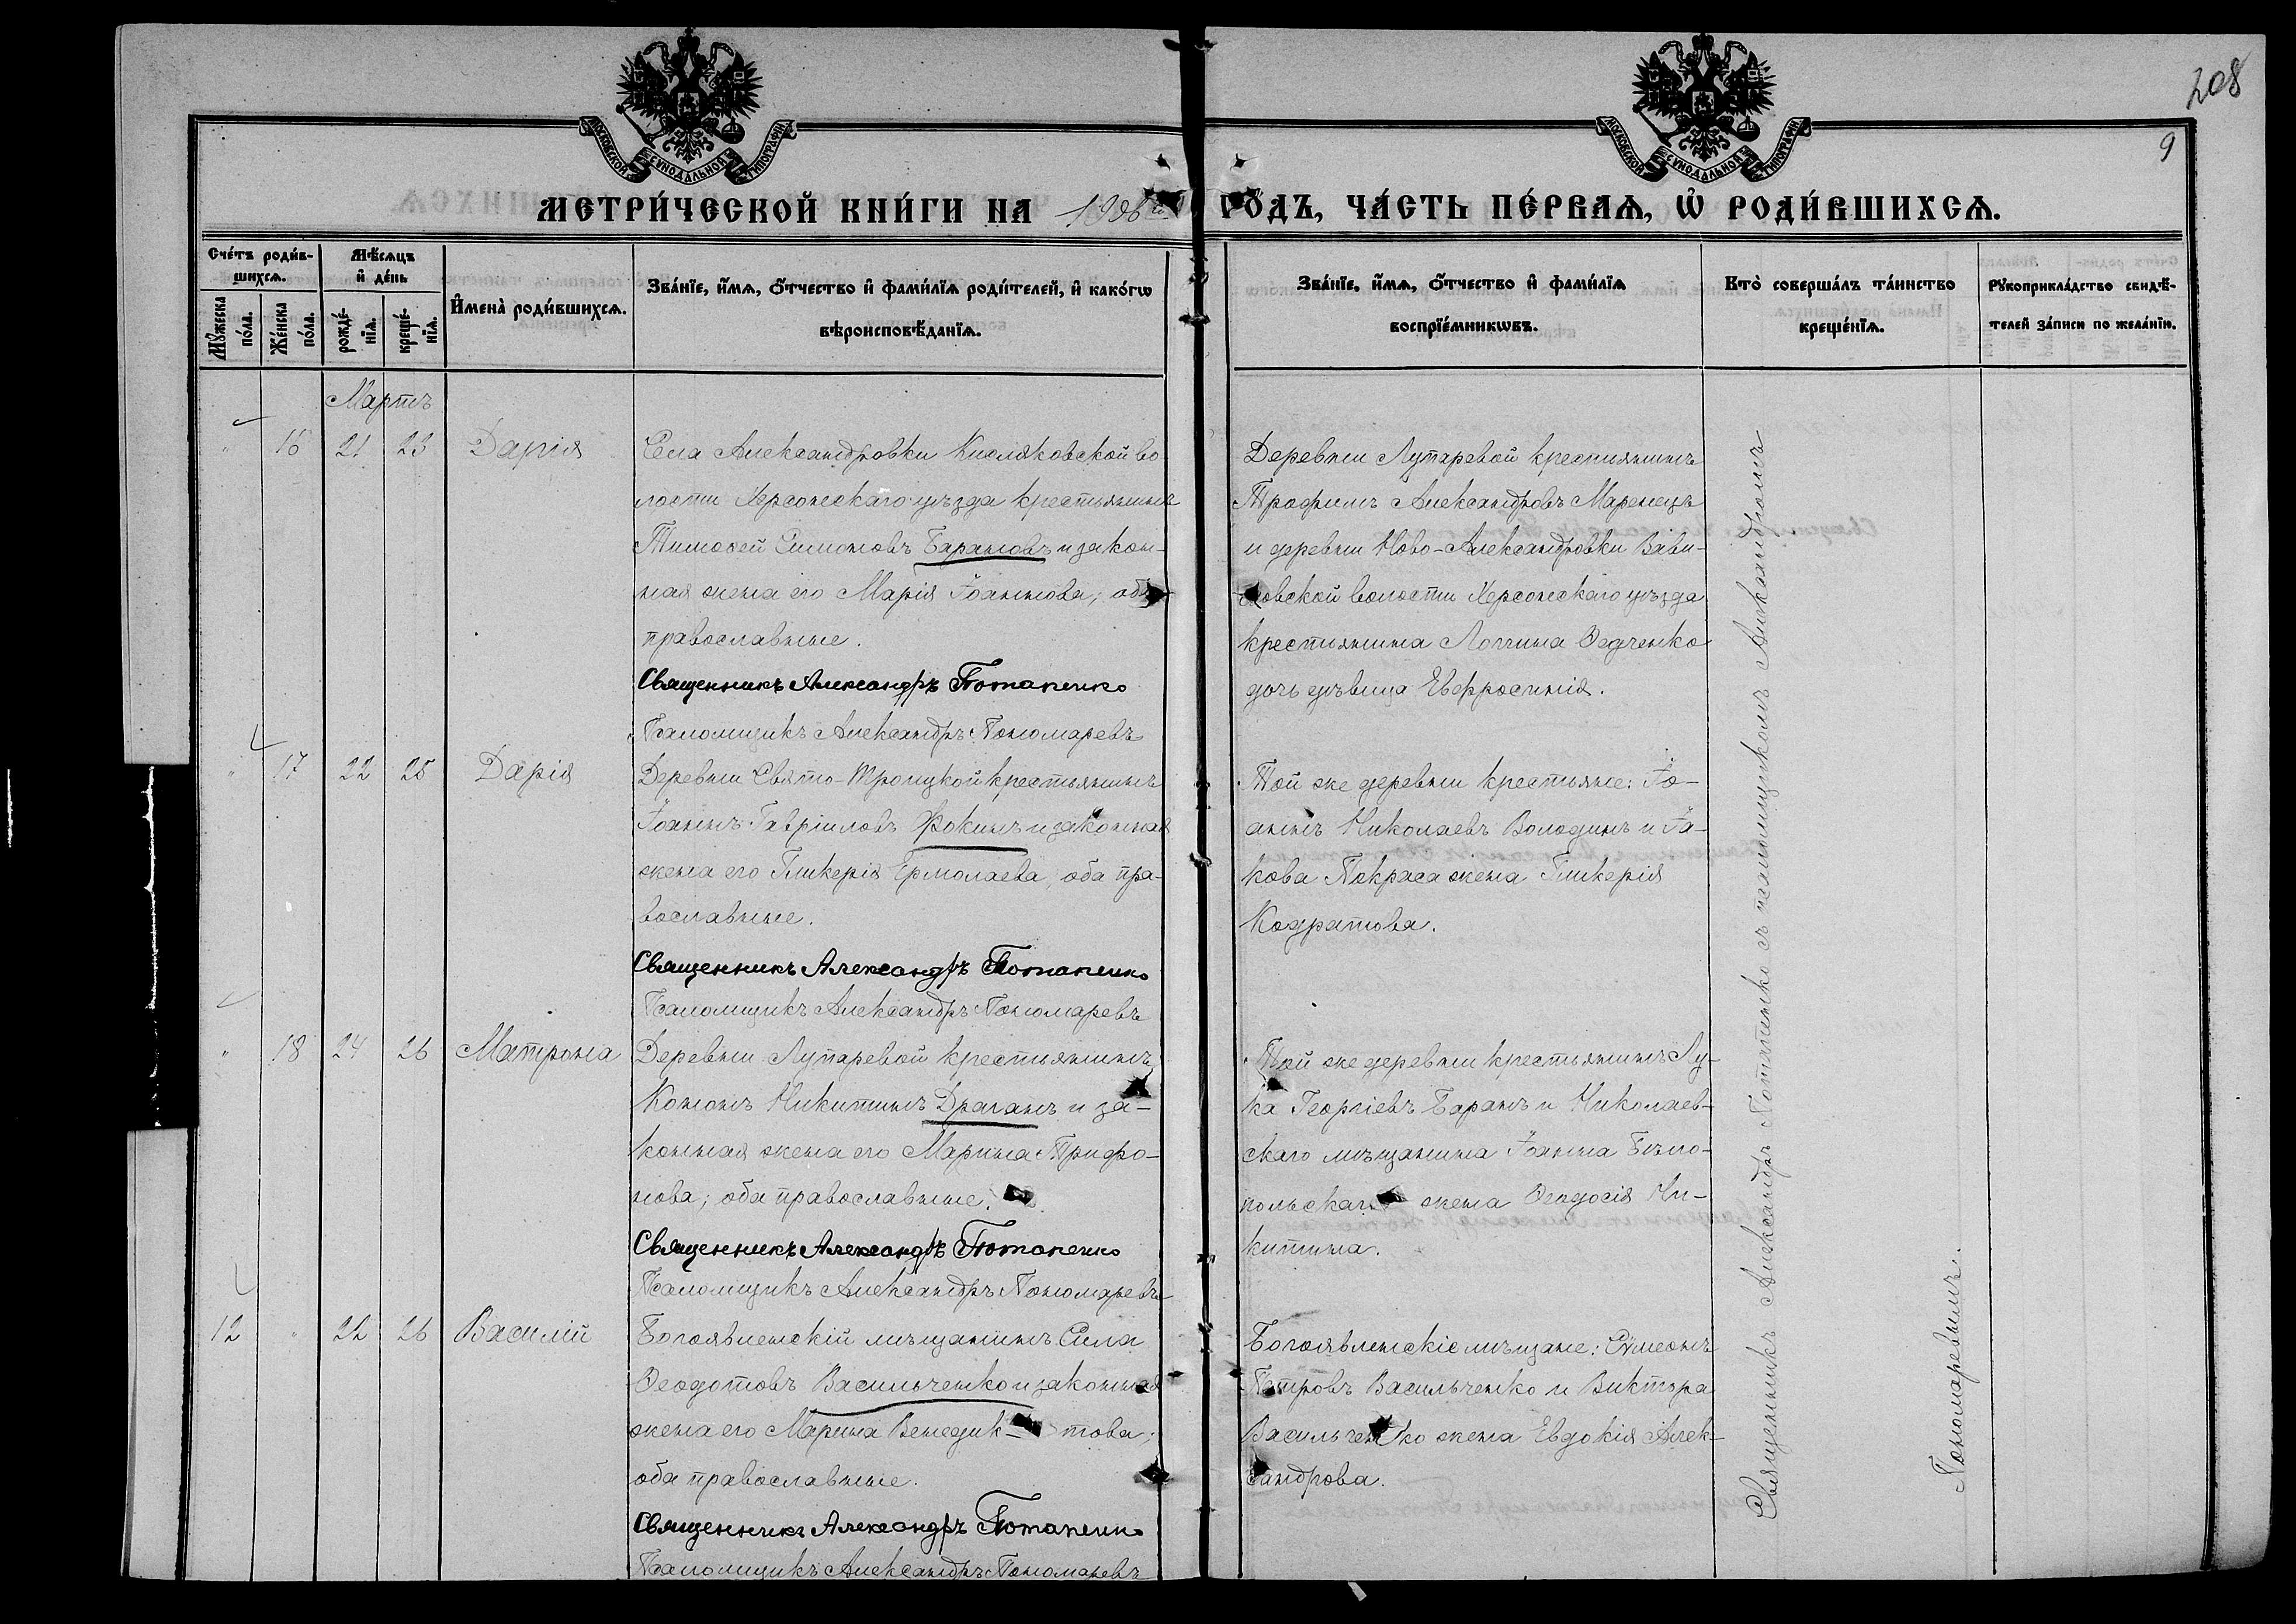 208
9
МОСКОВСКОЙ СѴНОДАЛЬНОЙ ТИПОГРАФІИ
МОСКОВСКОЙ СѴНОДАЛЬНОЙ ТИПОГРАФІИ
МЕТРИ́ЧЕСКОЙ КНИ́ГИ НА 1906 й ГО́ДЪ, ЧА́СТЬ ПЕ́РВАѦ, Ѡ҆ РОДИ́ВШИХСѦ.
Сче́тъ роди́в-
шихсѧ.
Мꙋ́жеска
по́ла.
Же́нска
по́ла.
Мѣ́сѧцъ
и҆ де́нь
рожде́-
нїѧ.
креще́-
нїѧ.
И҆мена̀ роди́вшихсѧ.
Зва́нїе, и҆́мѧ, ѻ҆́тчество и҆ фами́лїѧ роди́телей, и҆ како́гѡ
вѣроисповѣ́данїѧ.
Зва́нїе, и҆́мѧ, ѻ҆́тчество и҆ фами́лїѧ
воспрїе́мникѡвъ.
Кто̀ соверша́лъ та́инство
креще́нїѧ.
Рꙋкоприкла́дство свидѣ́-
телей за́писи по жела́нїю.
Мартъ
" 16 21 23 Дарія
Села Александровки Кисляковской во
лости Херсонскаго уѣзда крестьянинъ
Тимоѳей Симоновъ Барановъ и закон-
ная жена его Марія Іоаннова; оба
православные.
Священникъ Александръ Потапенко
Псаломщикъ Александръ Пономаревъ
Деревни Лупаревой крестьянинъ
Трофимъ Александровъ Маренецъ
и деревни Ново-Александровки Вави-
ловской волости Херсонскаго уѣзда
крестьянина Логгина Ѳедченко
дочь дѣвица Евфросинія.
" 17 22 25 Дарія
Деревни Свято-Троицкой крестьянинъ
Іоаннъ Гавріиловъ Фокинъ и законная
жена его Гликерія Ермолаева, оба пра-
вославные.
Священникъ Александръ Потапенко
Псаломщикъ Александръ Пономаревъ
Той же деревни крестьяне: Іо-
аннъ Николаевъ Володинъ и Іа-
кова Покраса жена Гликерія
Кодратова.
" 18 24 26 Матрона
Деревни Лупаревой крестьянинъ
Кононъ Никитинъ Драганъ и за-
конная жена его Марина Трифо-
нова; оба православные.
Священникъ Александръ Потапенко
Псаломщикъ Александръ Пономаревъ
Той же деревни крестьянинъ Лу-
ка Георгіевъ Баранъ и Николаев-
скаго мѣщанина Іоанна Бѣло-
польскаго жена Ѳеодосія Ни-
китина.
12 " 22 26 Василій
Богоявленскій мѣщанинъ Сила
Ѳеодотовъ Васильченко и законная
жена его Марина Венедик- това;
оба православные.
Священникъ Александръ Потапенко
Псаломщикъ Александръ Пономаревъ
Богоявленскіе мѣщане: Сѵмеонъ
Петровъ Васильченко и Виктора
Васильченко жена Евдокія Алек-
сандрова.
Священникъ Александръ Потапенко съ псаломщикомъ Александромъ
Пономаревымъ.